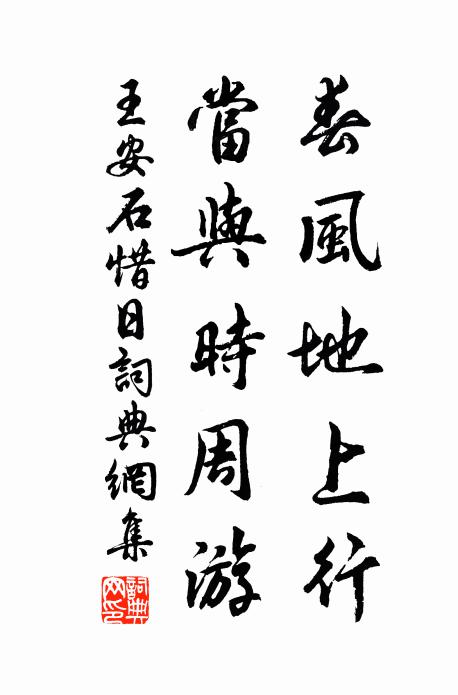 春風地上行
當與時周游
王安石惜日詞典網集
詞典网印